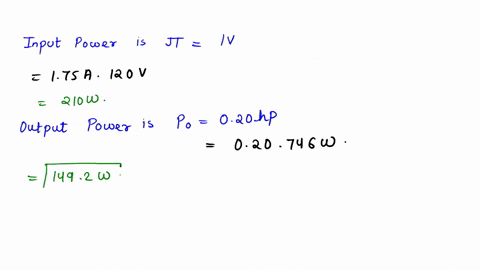 Input Power is JT = IV
= 1.75 A . 120 V
= 210 W.
Output Power is P₀ = 0.20 hp
= 0.20 . 746 W .
= 149.2 W